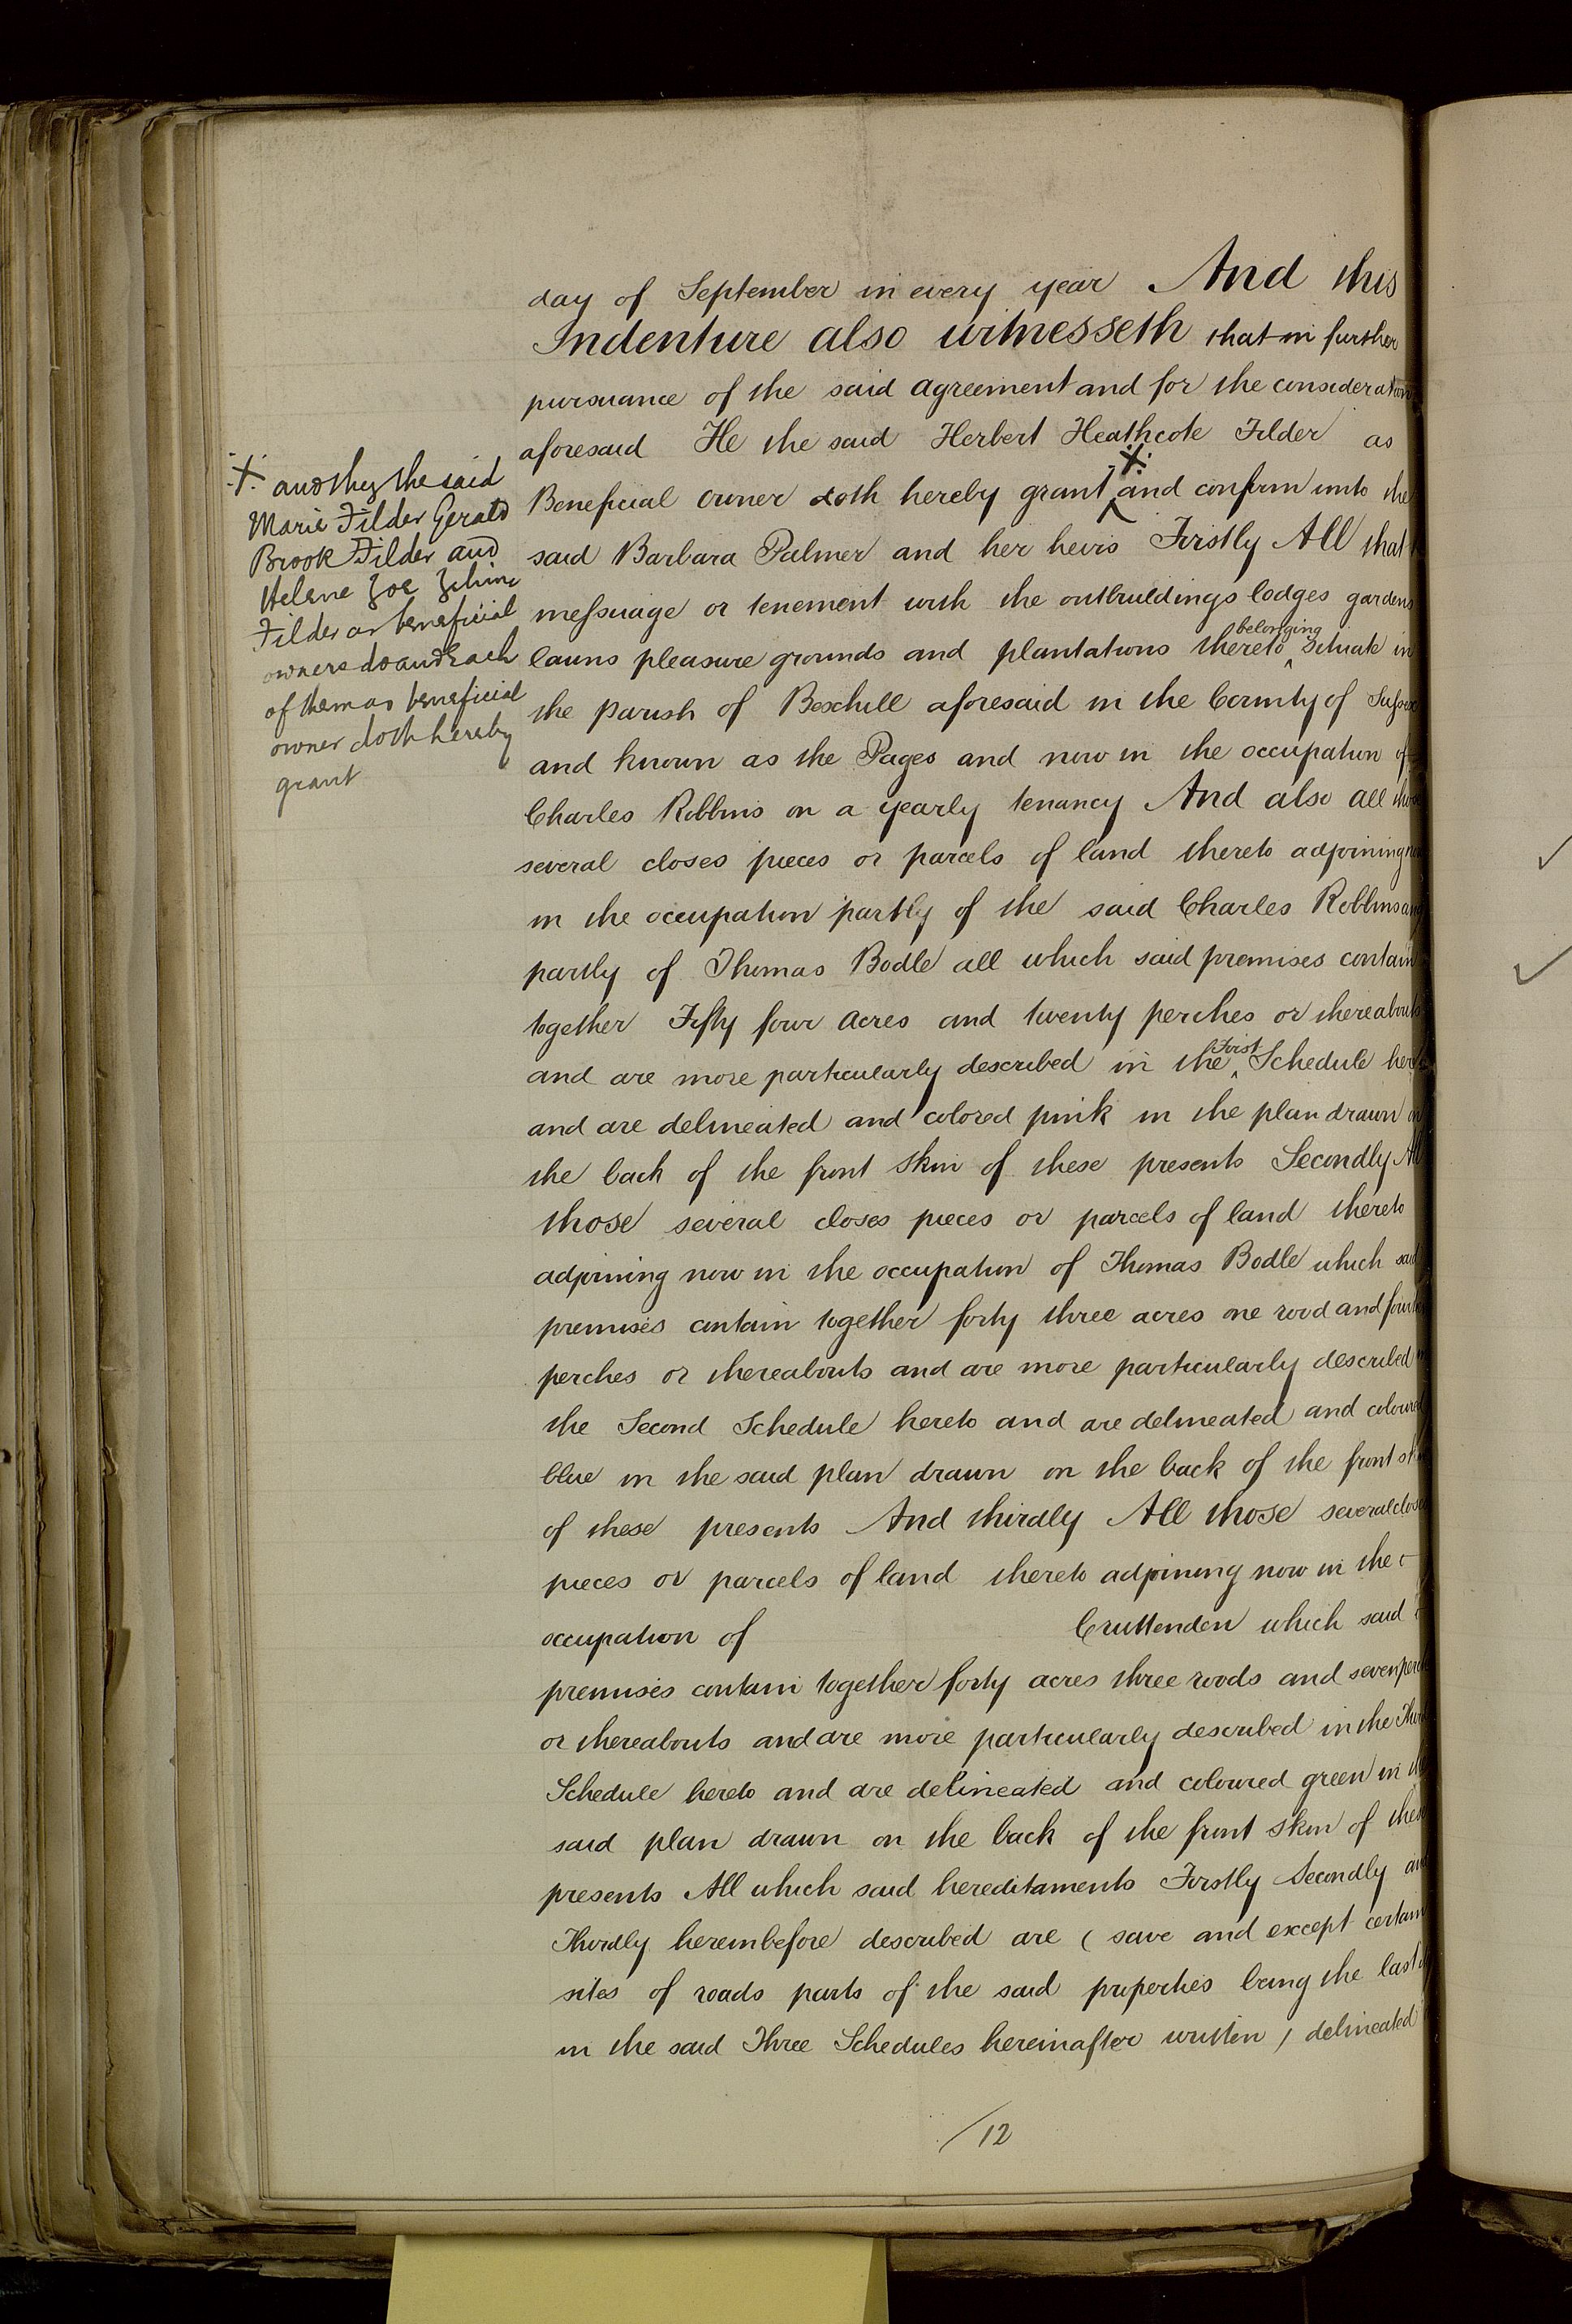 day of September in every year And this
Indenture also witnesseth that in further
pursuance of the said agreement and for the consideration
aforesaid He the said Herbert Heathcote Filder as
·X· and they the said
Marie Filder Gerald
Brook Filder and
Helene Zoe
Filder as beneficial
owners do and Each
of them as beneficial
owner doth hereby
grant
·X·
Beneficial owner doth hereby grant ^ and confirm unto the
said Barbara Palmer and her heirs Firstly All that
messuage or tenement with the outbuildings lodges gardens
belonging
lawns pleasure grounds and plantations thereto ^ situate in
the parish of Bexhill aforesaid in the County of Sussex
and known as the Pages and now in the occupation of
Charles Robbins on a yearly tenancy And also all those
several closes pieces or parcels of land thereto adjoining
in the occupation partly of the said Charles Robbins and
partly of Thomas Bodle all which said premises contain
together Fifty four acres and twenty perches or thereabouts
First
and are more particularly described in the ^ Schedule hereto
and are delineated and colored pink in the plan drawn on
the back of the front skin of these presents Secondly All
those several closes pieces or parcels of land thereto
adjoining now in the occupation of Thomas Bodle which said
premises contain together forty three acres one rood and
perches or thereabouts and are more particularly described in
the Second Schedule hereto and are delineated and coloured
blue in the said plan drawn on the back of the front skin
of these presents And thirdly All those several closes
pieces or parcels of land thereto adjoining now in the
occupation of Cruttenden which said
premises contain together forty acres three roods and seven perches
or thereabouts and are more particularly described in the Third
Schedule hereto and are delineated and coloured green in the
said plan drawn on the back of the front skin of these
presents All which said hereditaments Firstly Secondly and
Thirdly hereinbefore described are ( save and except certain
sites of roads parts of the said properties being the last
in the said Three Schedules hereinafter written ) delineated
/12